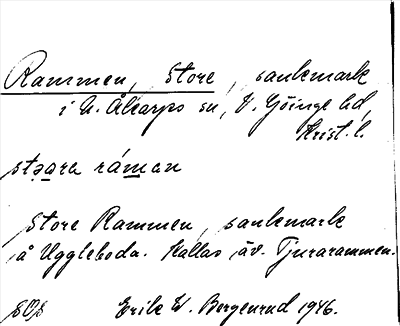 Rammen, Store, sankmark
i N. Åkarps sn, V. Göinge hd,
Krist. l.
stǝara ráman
Store Rammen, sankmark
å Uggleboda. Kallas äv. Tjurarammen.
Erik W. Bergenrud 1946.